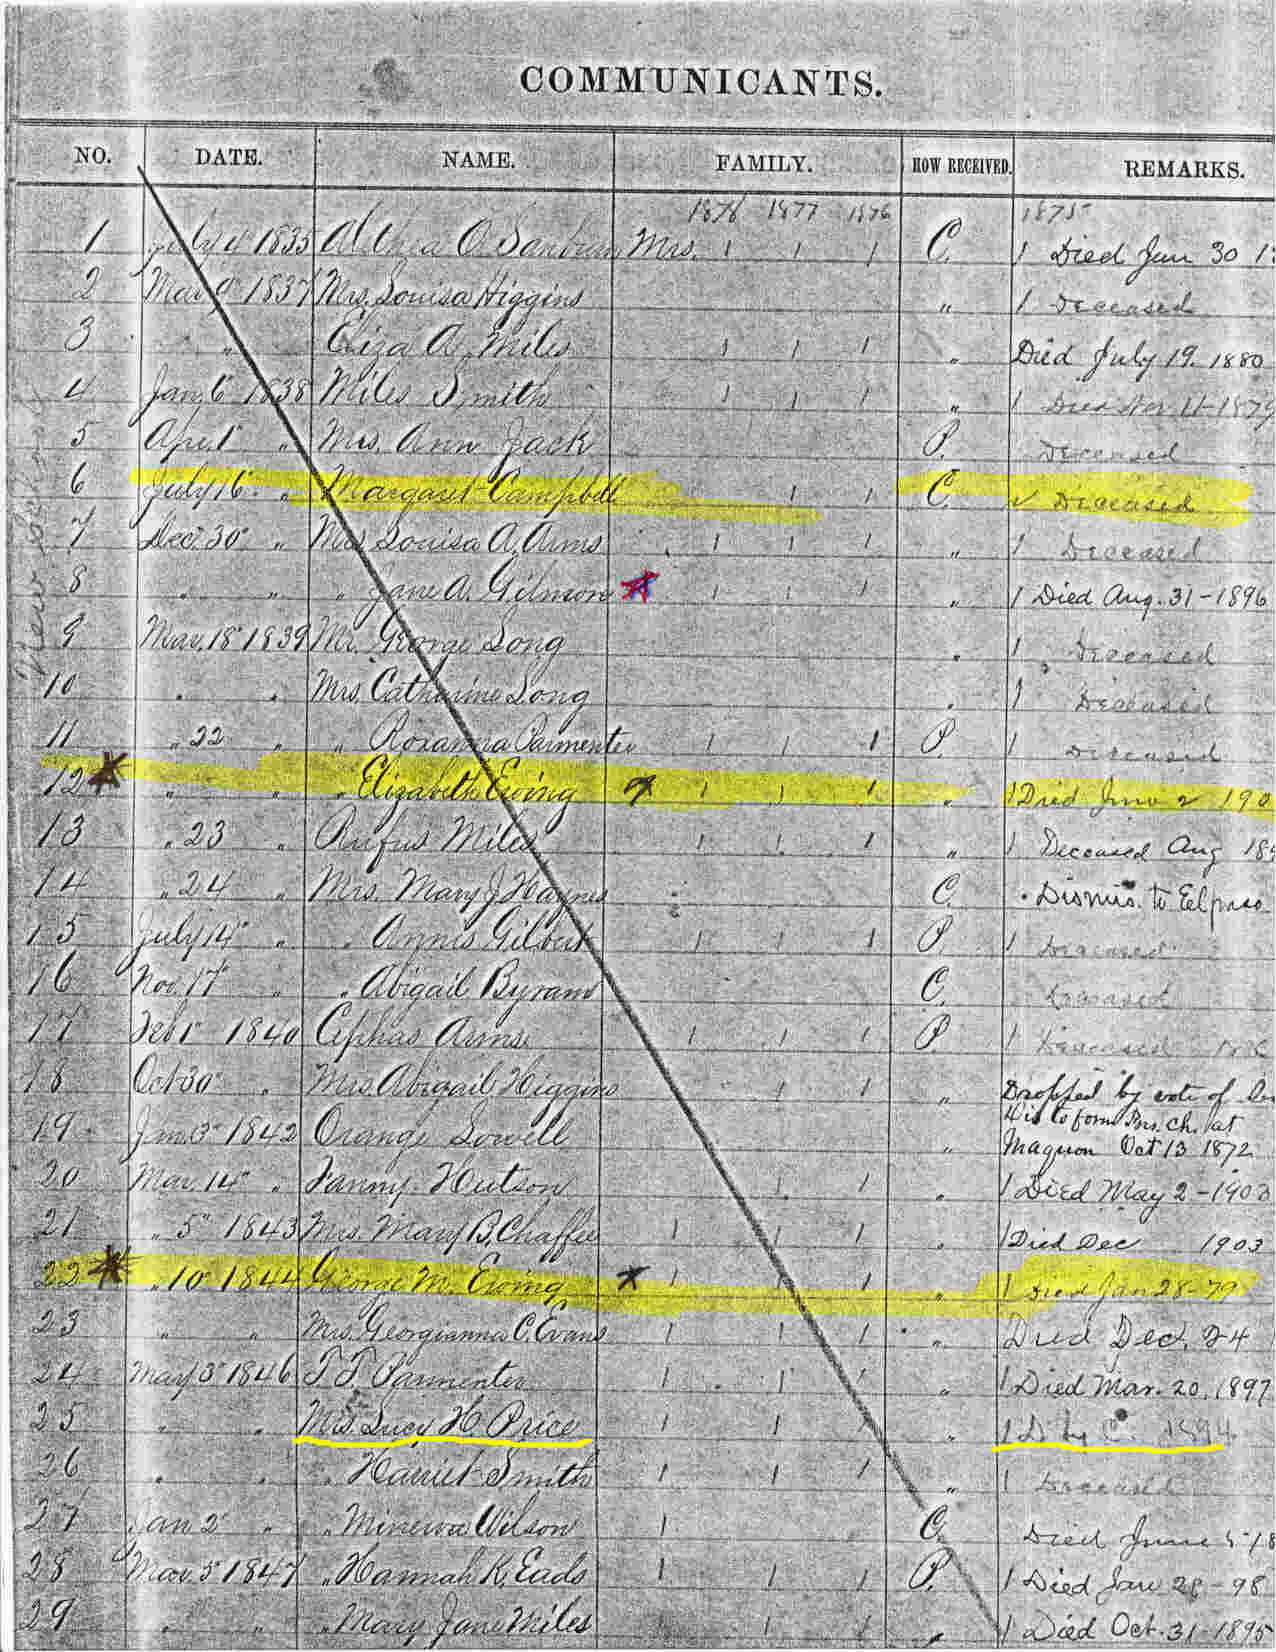 COMMUNICANTS.
NO. DATE. NAME. FAMILY. HOW RECEIVED. REMARKS.
1878 1877 1876 1875
1 July 4 1835 Althea O. Sanburn Mrs. 1 1 1 C. 1 Died Jan 30
2 Mar 9 1837 Mrs. Louisa Higgins " 1 Deceased
3 " Eliza A. Miles 1 1 1 " Died July 19. 1880
4 Jan 6 1838 Miles Smith 1 1 1 " 1 Died Nov 11-1879
5 Apr 1 " Mrs. Ann Jack P. Deceased
6 July 16 " Margaret Campbell 1 1 C. ✓ Deceased
7 Dec 30 " Mrs Louisa A. Arms 1 1 1 " 1 Deceased
8 " " " Jane A. Gilmore 1 1 1 " 1 Died Aug. 31-1896
9 Mar. 18 1839 Mr. George Long " 1 Deceased
10 " " Mrs. Catharine Long " 1 Deceased
11 " 22 " " Roxanna Parmenter 1 1 1 P 1 Deceased
12 " " " Elizabeth Ewing 1 1 1 " 1 Died June 2 190
13 " 23 " Rufus Miles 1 1 1 " 1 Deceased Aug 18
14 " 24 " Mrs. Mary J. Haynes C. Dismis. to Eelpaso
15 July 14 " " Annis Gilbert 1 1 1 P 1 Deceased
16 Nov. 17 " " Abigail Byram C. Deceased
17 Feb 1 1840 Cephas Arms 1 1 1 P. 1 Deceased
18 Oct 30 " Mrs. Abigail Higgins 1 1 " Dropped by vote of
19 Jan. 3 1842 Orange Lowell " Dis to form Prs. ch. at
Maquon Oct 13 1872
20 Mar. 14 " Fanny Hutson 1 1 " 1 Died May 2-1903
21 " 5 1843 Mrs. Mary B. Chaffee 1 1 1 " 1 Died Dec 1903
22 " 10 1844 George M. Ewing 1 1 1 " 1 Died Jan 28-79
23 " " Mrs. Georgianna C. Evans 1 1 1 " Died Dec. 24
24 May 3 1846 T. T. Parmenter 1 1 1 " 1 Died Mar. 20. 1897
25 " " Mrs. Lucy H. Price 1 1 1 " 1 D by C. 1894
26 " " " Harriet Smith 1 1 1 " 1 Deceased
27 Jan 2 " " Minerva Wilson 1 C. Died June 5 18
28 Mar. 5 1847 " Hannah K. Eads 1 1 1 P. 1 Died Jan 28-98
29 " " " Mary Jane Miles 1 1 " 1 Died Oct. 31-1895